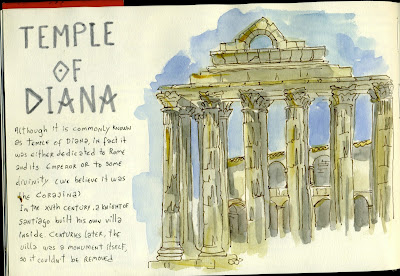 TEMPLE
OF
DIANA
Although it is commonly known
as temple of Diana, in fact it
was either dedicated to Rome
and its Emperor or to some
divinity (we believe it was
the Corajina)
In the XVIth century, a knight of
Santiago built his own villa
inside. Centuries later, the
villa was a monument itself,
so it couldn't be removed